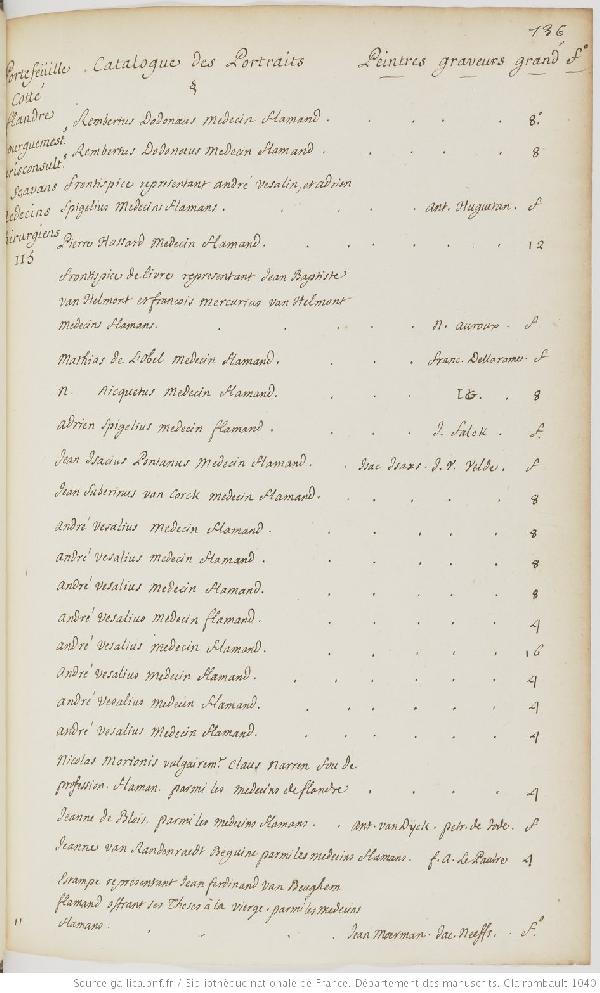 136
Portefeüille . Catalogue des Portraits Peintres graveurs grandr fo
Cotté §
flandre
Rembertus Dodonæus medecin flamand . 8o
Bourguemestre
Rembertus Dodoneus medecin flamand . 8
jurisconsultes
Scavans
frontispice representant andré Vesalin, et adrien
medecins Spigelius medecins flamans . Ant. Huguetan . f
chirurgiens
115
Pierre Hassard medecin flamand . 12
frontispice de livre representant Jean Baptiste
van Helmont et francois mercurius van Helmont
medecins flamans . N. auroux . f
Mathias de L'obel medecin flamand . franc. Dellarame . f
N. Ricquetus medecin flamand . 8
adrien Spigelius medecin flamand . J. Falck . f
Jean Isacius Pontanus medecin flamand . Isac Isaxs . J. V. Velde . f
Jean Suberinus van Corck medecin flamand . 8
andré Vesalius medecin flamand . 8
andré Vesalius medecin flamand . 8
andré Vesalius medecin flamand . 8
andré Vesalius medecin flamand . 4
andré Vesalius medecin flamand . 16
andré Vesalius medecin flamand . 4
andré Vesalius medecin flamand . 4
andré Vesalius medecin flamand . 4
Nicolas Morionis vulgairemt Claus Narren fou de
profession . flaman . parmi les medecins de flandre . 4
Jeanne de Blois . parmi les medecins flamans . Ant. van Dÿck . petr. de Jode . f
Jeanne van Randenraedt Beguine parmi les medecins flamans . f. A. le Pautre 4
Estampe representant Jean ferdinand van Beughem
flamand offrant ses Theses à la vierge . parmi les medecins
flamans . Jean Moerman . Jac. Neeffs . fo
Source gallica.bnf.fr / Bibliothèque nationale de France. Département des manuscrits. Clairambault 1040